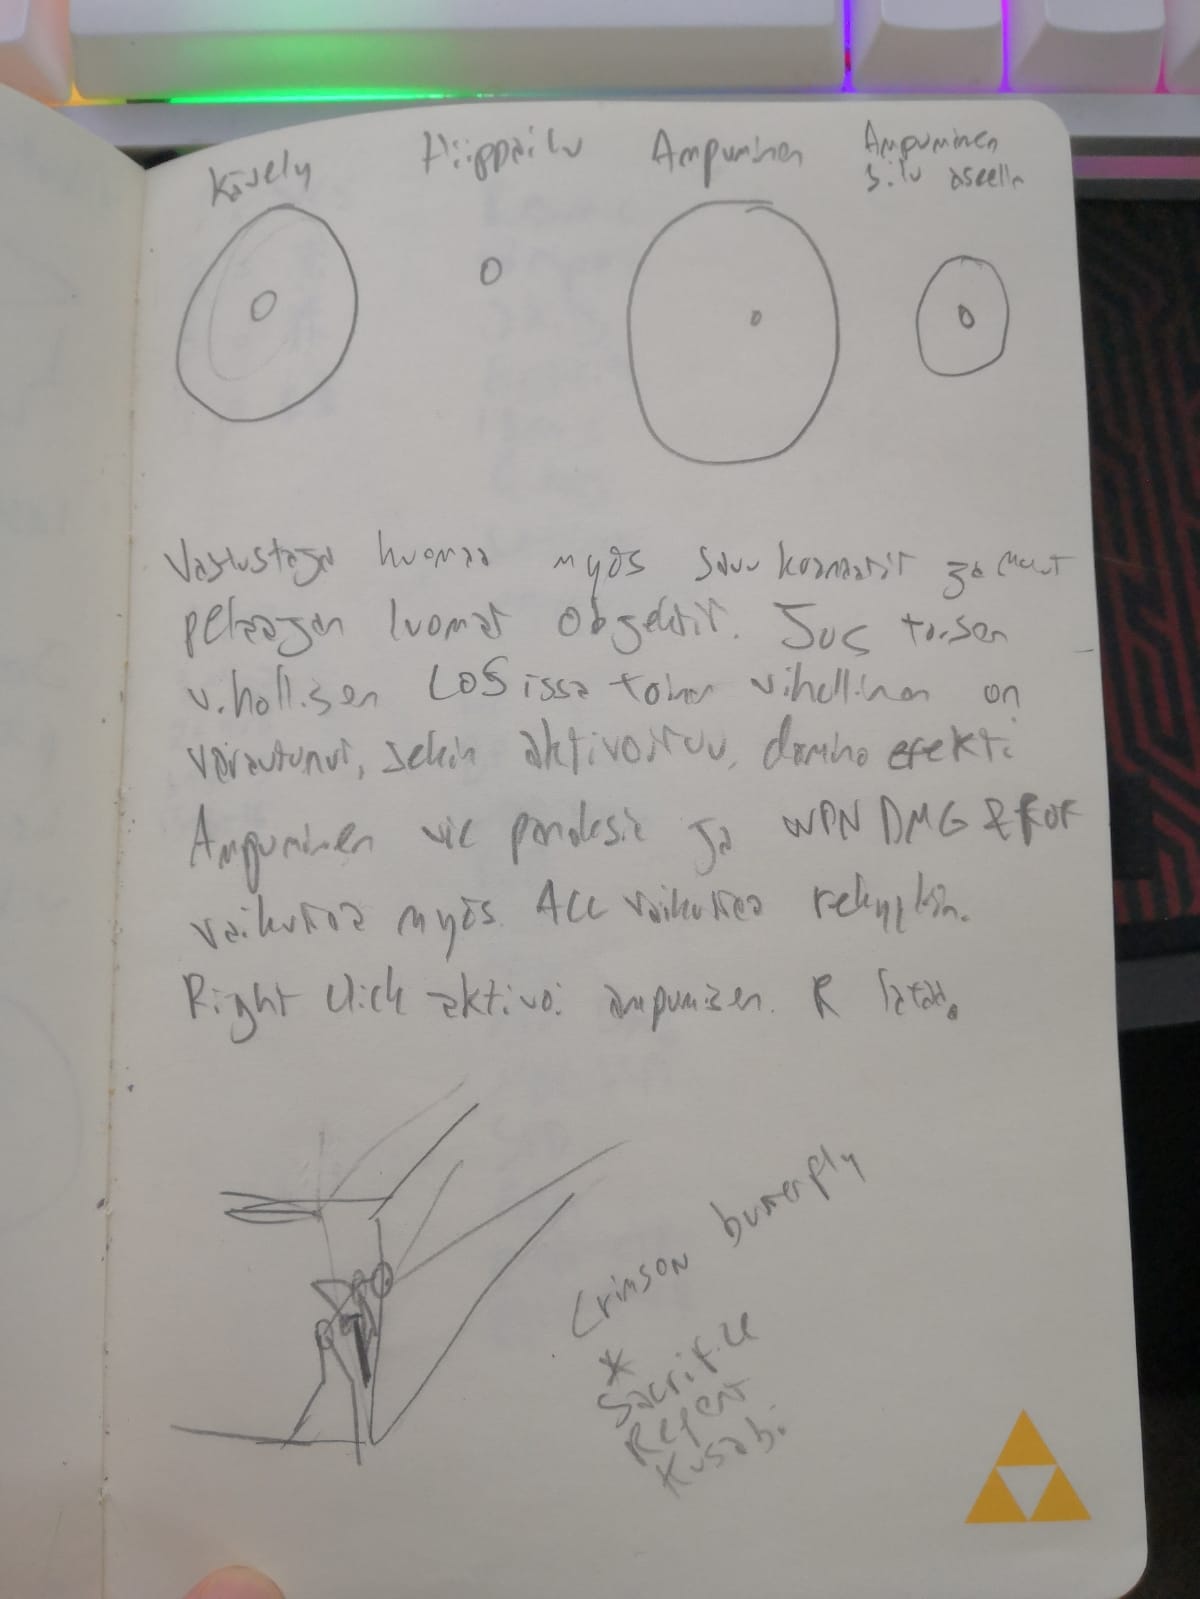 Kävely
Hiippailu
Ampuminen
Ampuminen
silu aseella
Vastustaja huomaa myös savukranaatit ja muut
pelaajan luomat objektit. Jos toisen
vihollisen LOSissa toinen vihollinen on
varautunut, sekin aktivoituu, domino efekti
Ampuminen vie panoksia ja WPN DMG & ROF
vaikuttaa myös. ACC vaikuttaa rekyyliin.
Right click aktivoi ampumisen. R lataa.
Crimson butterfly
*
Sacrifice
Repent
Kusabi